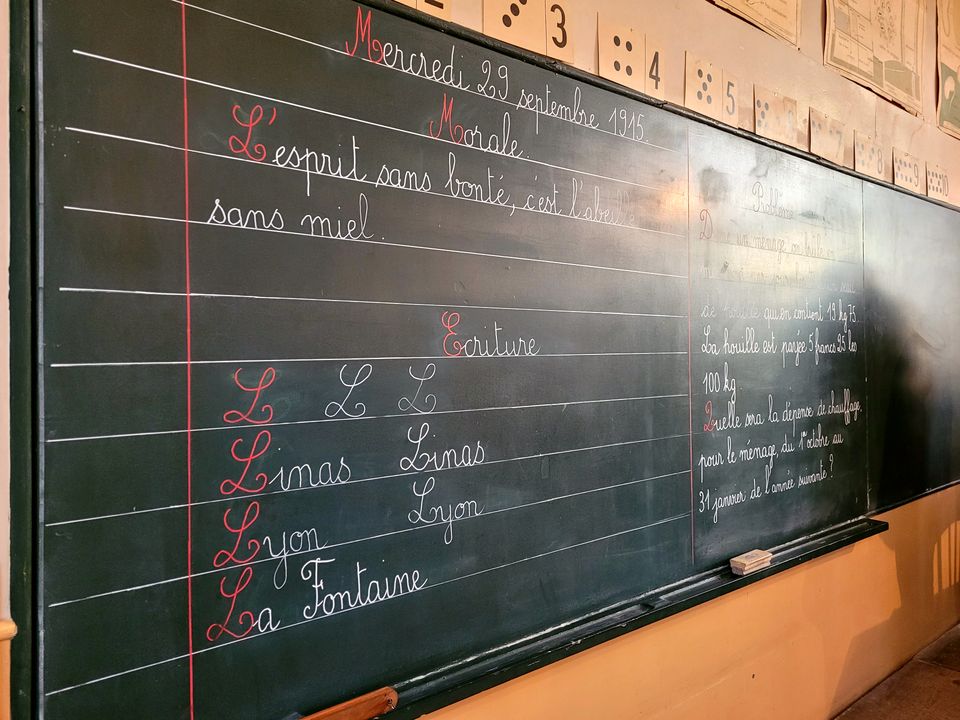 Mercredi 29 septembre 1915.
Morale.
L'esprit sans bonté, c'est l'abeille
sans miel.
Ecriture
L L L
Linas Linas
Lyon Lyon
La Fontaine
Problème
D un ménage on brûle
de houille qu'on contient 19 kg 75.
La houille est payée 5 francs 25 les
100 kg.
Quelle sera la dépense de chauffage,
pour le ménage, du 1er octobre au
31 janvier de l'année suivante ?
3
4
5
7
8
9
10